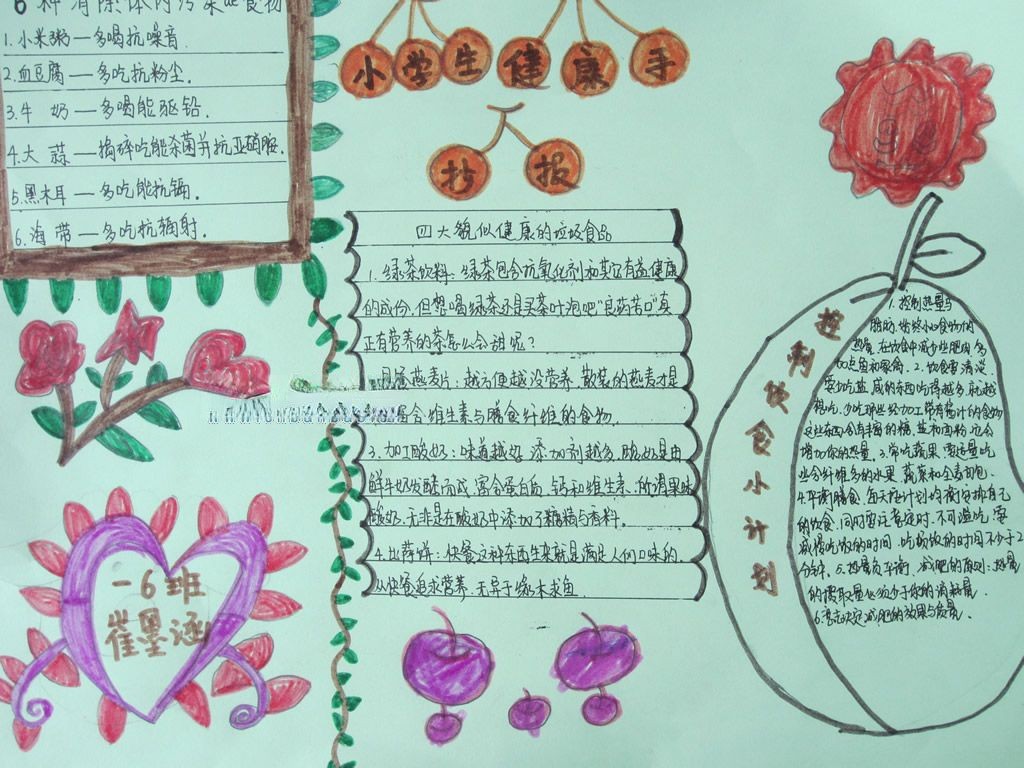 6种消除体内污染de食物
1.小米粥—多喝抗噪音.
2.血豆腐—多吃抗粉尘.
3.牛 奶—多喝能驱铅.
4.大 蒜—捣碎吃能杀菌并抗亚硝胺.
5.黑木耳—多吃能抗镉.
6.海 带—多吃抗辐射.
小学生健康手
抄报
四大貌似健康的垃圾食品
1.绿茶饮料:绿茶包含抗氧化剂和其它有益健康
的成份.但想喝绿茶还是买茶叶泡吧"良药苦口"真
正有营养的茶怎么会甜呢?
燕麦片:越方便越没营养.散装的燕麦才是
维生素与膳食纤维的食物.
3.加工酸奶:味道越好 添加剂越多.酸奶是由
鲜牛奶发酵而成 富含蛋白质 钙和维生素.所谓果味
酸奶.无非是在酸奶中添加了糖精与香料.
4.比萨饼:快餐这种东西生来就是满足人们口味的.
从快餐追求营养.无异于缘木求鱼.
一6班
崔墨涵
控制饮食小计划
1.控制热量与
脂肪.始终小心食物的
热量.在饮食中减少些肥肉.多
加点鱼和家禽.2.饮食要清淡
要少吃盐.咸的东西吃得越多.就越
想吃.少吃那些经加工带有酱汁的食物
这些东西含有丰富的糖.盐和面粉.它会
增加你的热量.3.常吃蔬果 要适量吃
些含纤维多的水果 蔬菜和全麦面包.
4.平衡膳食.每天应计划均衡包括自己
的饮食.同时要注意定时.不可滥吃.要
减慢吃饭的时间.吃饭的时间不少于2
分钟.5.热量负平衡.减肥的原则:热量
的摄取量必须少于你的消耗量.
6.意志决定减肥的效果与质量.